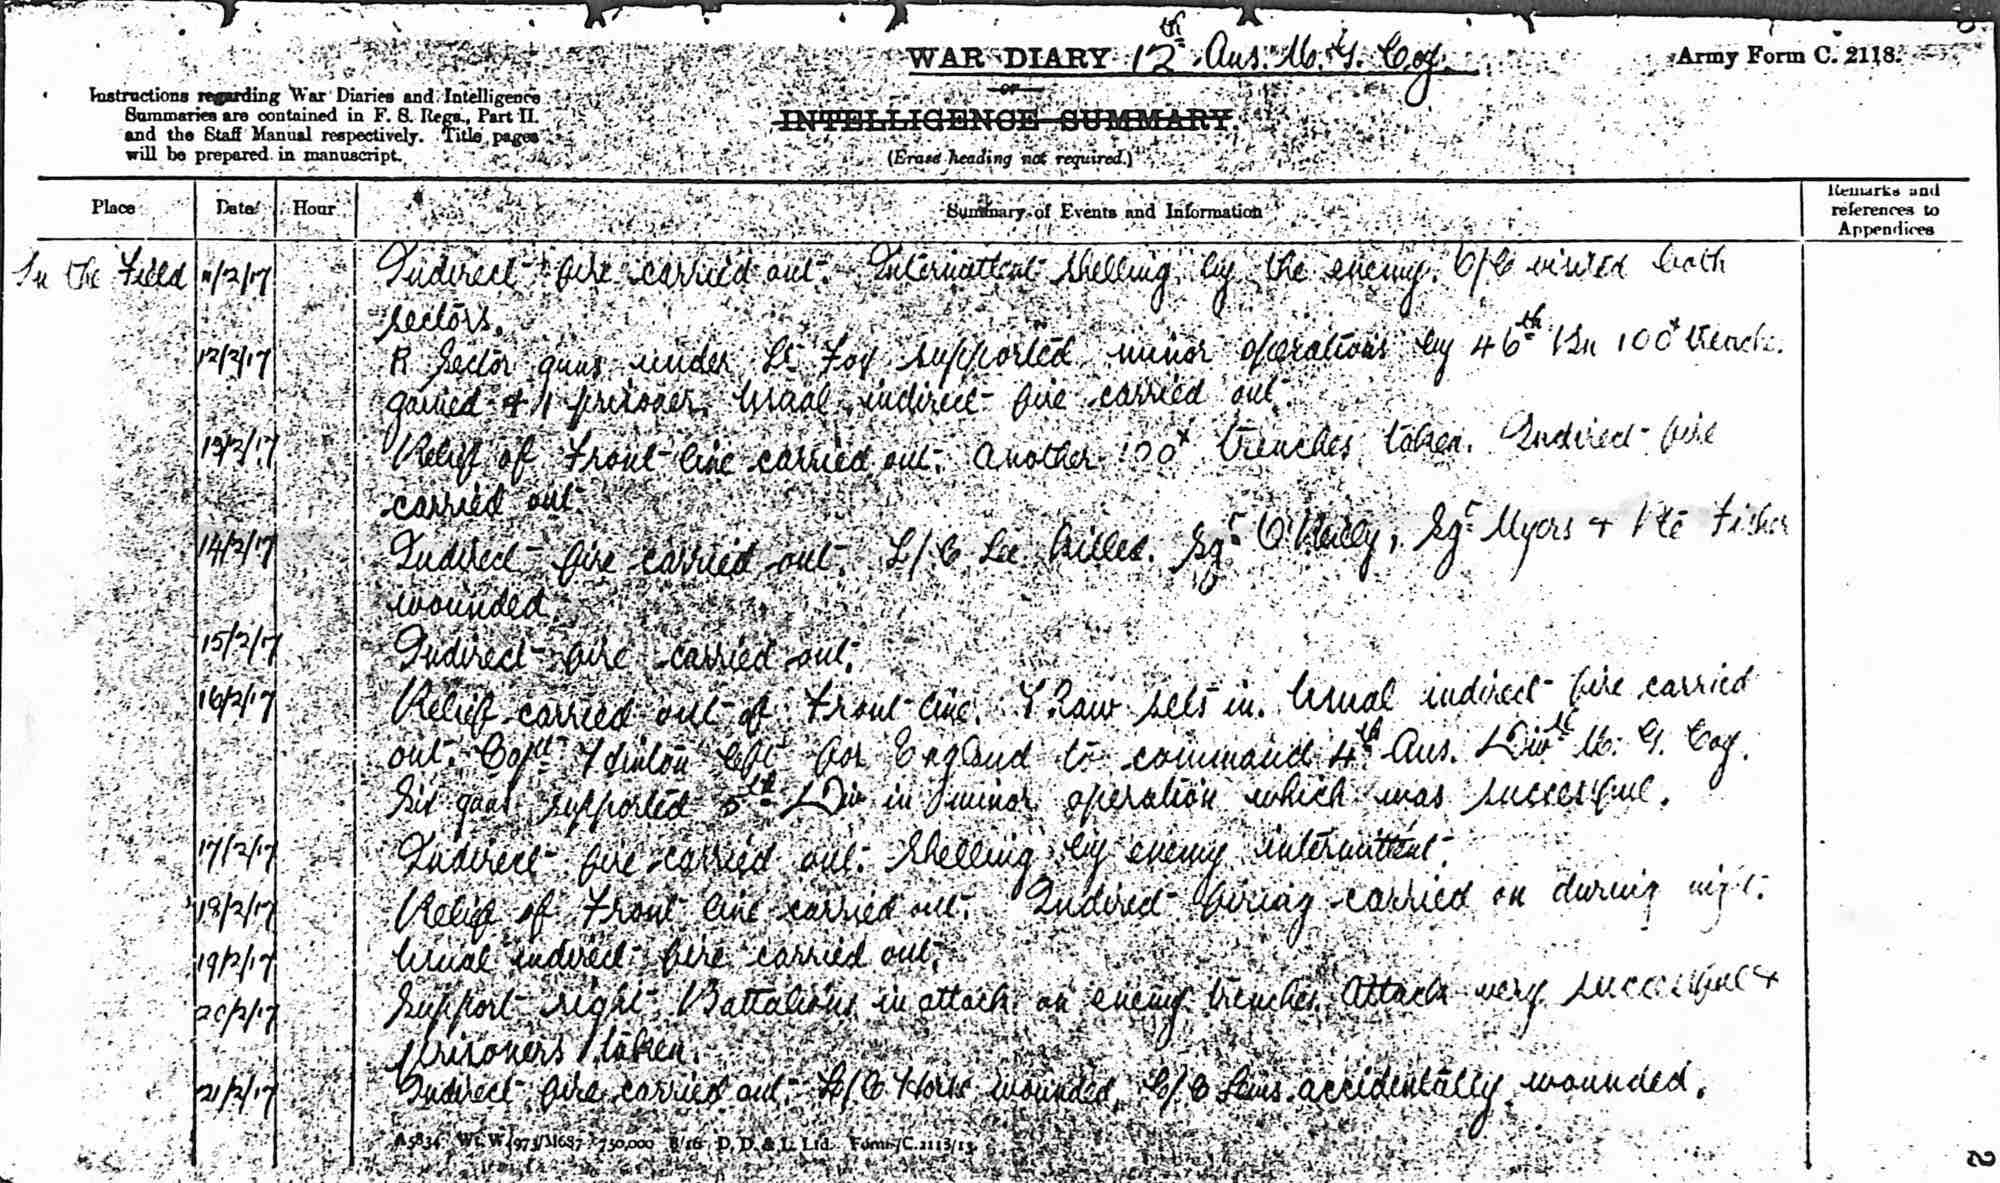 WAR DIARY 12th Aus. M. G. Coy.
Army Form C. 2118.
or
INTELLIGENCE SUMMARY.
(Erase heading not required.)
Instructions regarding War Diaries and Intelligence
Summaries are contained in F. S. Regs., Part II.
and the Staff Manual respectively. Title pages
will be prepared in manuscript.
Place Date Hour Summary of Events and Information Remarks and
references to
Appendices
In the Field 11/2/17 Indirect fire carried out. Intermittent shelling by the enemy. O/C visited both
sectors.
12/2/17 R Sector guns under Lt Foy supported minor operations by 46th Bn 100x trench
gained & 1 prisoner. Usual indirect fire carried out.
13/2/17 Relief of Front line carried out. Another 100x trenches taken. Indirect fire
carried out.
14/2/17 Indirect fire carried out. L/C Lee killed. Sgt O'Reilly, Sgt Myers & Pte Fisher
wounded
15/2/17 Indirect fire carried out.
16/2/17 Relief carried out of Front line. Thaw sets in. Usual indirect fire carried
out. Capt left for England to command 4th Aus. Div. M. G. Coy.
Six guns supported 5th Div in minor operation which was successful.
17/2/17 Indirect fire carried out. Shelling by enemy intermittent.
18/2/17 Relief of Front line carried out. Indirect firing carried on during night.
19/2/17 Usual indirect fire carried out.
20/2/17 Support right Battalions in attack on enemy trenches. Attack very successful &
prisoners taken.
21/2/17 Indirect fire carried out. L/C wounded, accidentally wounded.
A5834 Wt. W4973/M687 750,000 8/16 D. D. & L. Ltd. Forms/C.2118/13
2